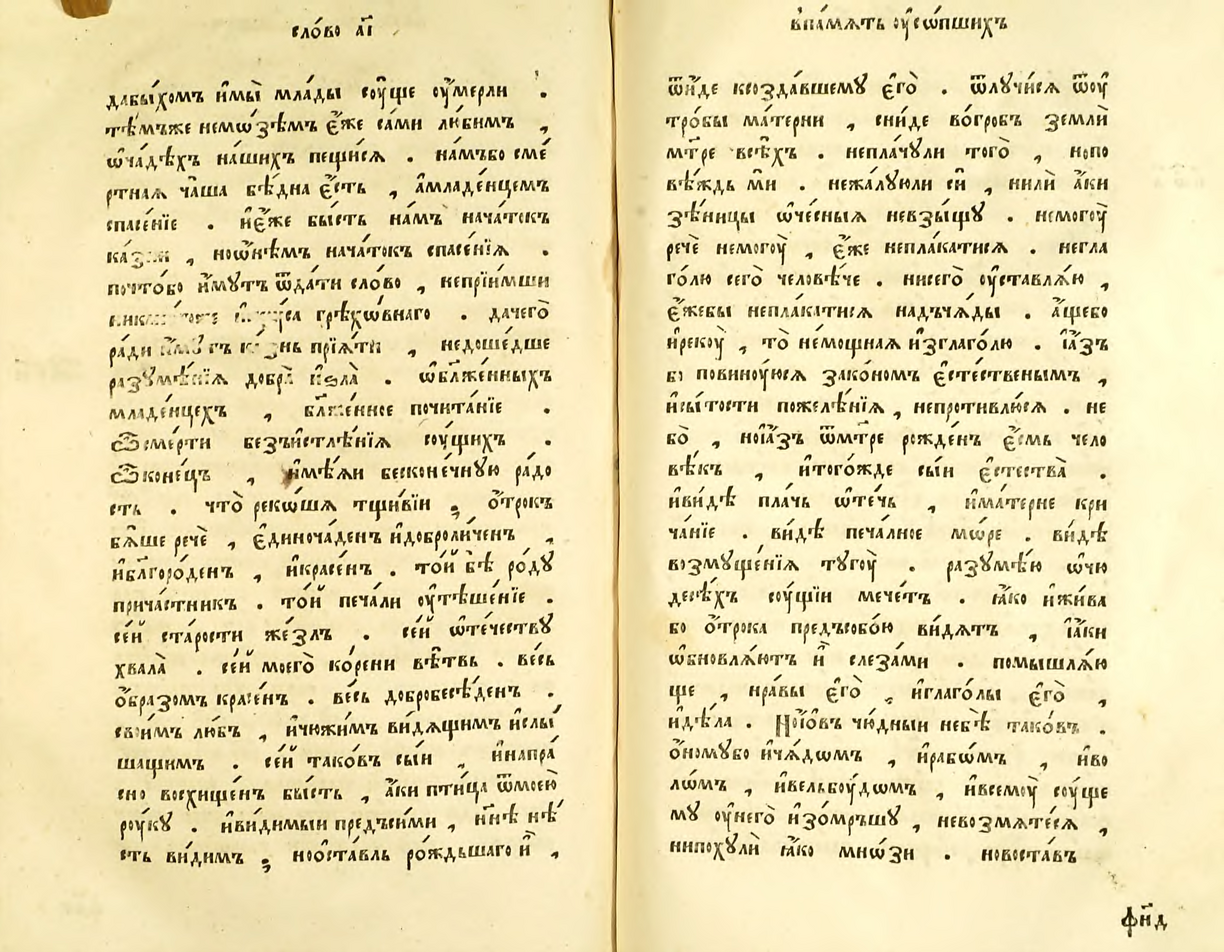 сло́во а҃і
дабы́хомъ и҆мы̀ мла́ды соу́ще оу҆́мерли .
тѣ́мъже немѡ́зѣмъ є҆́же са́ми лю́бимъ ,
ѡ҆ча́дѣхъ на́шихъ пещи́сѧ . на́мъбо сме́
ртнаѧ ча́ша бѣ́дна є҆́сть , а҆младе́нцемъ
спасе́нїе . и҆є҆́же бы́сть на́мъ нача́токъ
ка́з , ноѡ҆нѣ́мъ нача́токъ спасе́нїѧ .
почто́бо и҆́мꙋтъ ѿда́ти сло́во , непрїи́мши
грѣхѡ́внаго . дачего̀
ра́ди и҆́мꙋтъ ка́знь прїѧ́ти , недоше́дше
разꙋмѣ́нїѧ добра̀ и҆ѕла̀ . ѡ҆бл҃же́нныхъ
младе́нцехъ , бл҃же́нное почита́нїе .
Ѿсме́рти безъи҆стлѣ́нїѧ соу́щихъ .
Ѿконе́цъ , и҆мѣ́ѧи бесконе́чнꙋю ра́до
сть . что̀ реко́шѧ тщи́вїи ; ѻ҆́трокъ
бѧ́ше речѐ , є҆диноча́денъ и҆доброли́ченъ ,
и҆бл҃горо́денъ , и҆красе́нъ . то́й бѣ̀ ро́дꙋ
прича́стникъ . то́й печа́ли оу҆тѣше́нїе .
се́й ста́рости же́злъ . се́й ѡ҆те́чествꙋ
хвала̀ . се́й моего̀ ко́рени вѣ́твь . ве́сь
ѻ҆́бразомъ красе́нъ . ве́сь добробесѣ́денъ .
свои́мъ лю́бъ , и҆чюжи́мъ ви́дѧщимъ и҆слы́
шащимъ . се́й тако́въ сы́и , и҆напра́
сно восхище́нъ бы́сть , а҆́ки пти́ца ѿмоею̀
роу́кꙋ . и҆ви́димыи предъси́ми , и҆нн҃ѣ нѣ́
сть ви́димъ ; ноѡ҆ста́вль ро́ждьшаго и҆̀ ,
впа́мѧть оу҆со́пшихъ
ѿи́де ксозда́вшемꙋ є҆го̀ . ѿлꙋчи́сѧ ѿоу҆
тро́бы ма́терни , сни́де во́гробъ землѝ
мт҃ре всѣ́хъ . непла́чꙋли того̀ , нопо
вѣ́ждь мѝ . нежа́лꙋюли сѝ , нилѝ а҆́ки
зѣ́ницы ѡ҆че́сныѧ невзыщꙋ̀ . немогоу̀
речѐ немогоу̀ , є҆́же непла́катисѧ . негла
го́лю сего̀ человѣ́че . нисего̀ оу҆ставлѧ́ю ,
є҆́жебы непла́катисѧ надъчѧ́ды . а҆́щебо
и҆рекоу̀ , то̀ немощнаѧ и҆зглаго́лю . і҆а҆́зъ
бо повиноу́юсѧ зако́номъ є҆сте́ственымъ ,
и҆сы́тости пожелѣ́нїѧ , непроти́влюсѧ . не
бо̀ , ної҆а҆́зъ ѿмт҃ре рожде́нъ є҆́смь чело
вѣ́къ , и҆того́жде сы́и є҆стества̀ .
и҆ви́дѣ пла́чь ѡ҆те́чь , и҆ма́терне кри
ча́нїе . ви́дѣ печа́лное мо́ре . ви́дѣ
возмꙋще́нїѧ тꙋгоу̀ . разꙋмѣ́ю ѡ҆чю
десѣ́хъ соу́щїи ме́четъ . ꙗ҆́ко и҆жи́ва
бо ѻ҆́трока предъсобо́ю ви́дѧтъ , і҆а҆́ки
ѡ҆бновлѧ́ютъ и҆̀ слеза́ми . помышлѧ́ю
ще , нра́вы є҆го̀ , и҆глаго́лы є҆го̀ ,
и҆дѣ́ла . Ної҆ѡ́въ чю́дныи небѣ̀ тако́въ .
ѻ҆́номꙋбо и҆чѧ́дѡмъ , и҆рабѡ́мъ , и҆во
лѡ́мъ , и҆вельбоу́дѡмъ , и҆всемоу̀ соу́ще
мꙋ оу҆него̀ и҆зо́мръшꙋ , невозмѧте́сѧ ,
нипохꙋлѝ ꙗ҆́ко мно́зи . новоста́въ
ф҃н҃д